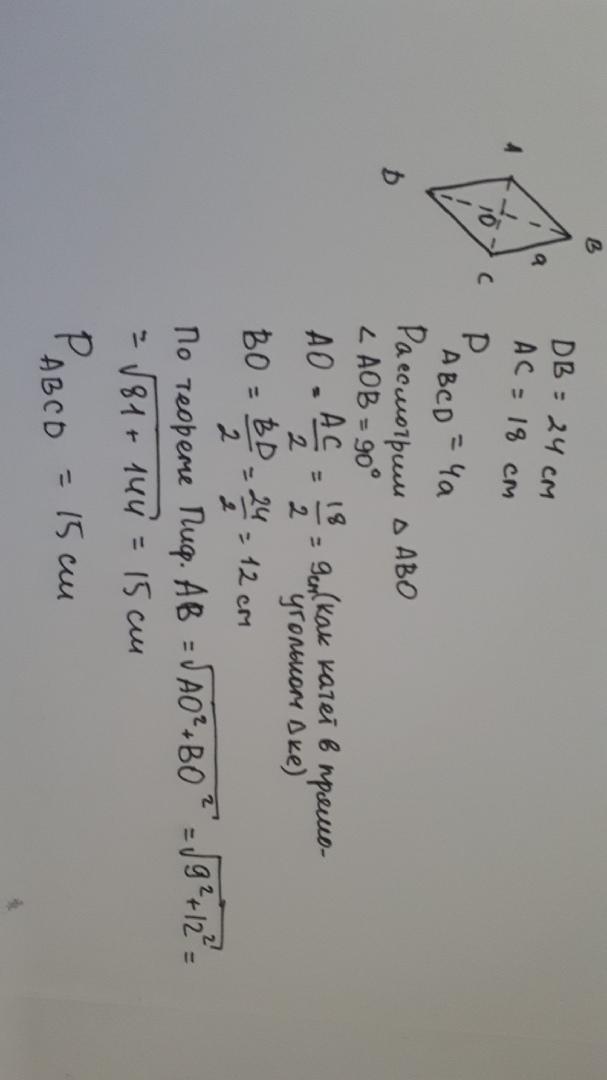 A
B
a
10
C
D
DB = 24 cm
AC = 18 cm
P ABCD = 4a
Рассмотрим △ ABO
∠ AOB = 90°
AO = AC/2 = 18/2 = 9см (как катет в прямо-
угольном △ке)
BO = BD/2 = 24/2 = 12 см
По теореме Пиф. AB = √AO²+BO² = √9²+12² =
= √81 + 144 = 15 см
P ABCD = 15 см